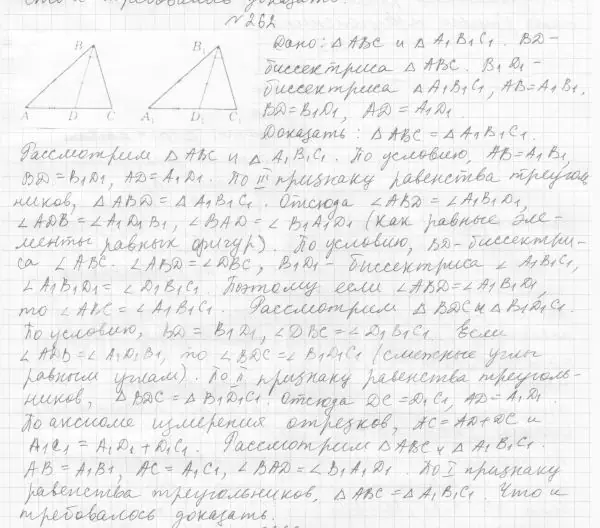 что и требовалось доказать.
№ 262
Дано: △ ABC и △ A₁B₁C₁. BD-
биссектриса △ ABC. B₁D₁-
биссектриса △ A₁B₁C₁, AB=A₁B₁,
BD=B₁D₁, AD=A₁D₁.
Доказать: △ ABC = △ A₁B₁C₁.
B
A D C
B₁
A₁ D₁ C₁
Рассмотрим △ ABC и △ A₁B₁C₁. По условию, AB=A₁B₁,
BD=B₁D₁, AD=A₁D₁. По III признаку равенства треуголь
ников, △ ABD = △ A₁B₁C₁. Отсюда ∠ABD = ∠A₁B₁D₁,
∠ADB = ∠A₁D₁B₁, ∠BAD = ∠B₁A₁D₁ (как равные эле-
менты равных фигур). По условию, BD-биссектри-
са ∠ABC. ∠ABD = ∠DBC, B₁D₁- биссектриса ∠ A₁B₁C₁,
∠A₁B₁D₁ = ∠D₁B₁C₁. Поэтому если ∠ABD=∠A₁B₁D₁,
то ∠ABC = ∠A₁B₁C₁. Рассмотрим △ BDC и △ B₁D₁C₁.
По условию, BD = B₁D₁, ∠DBC = ∠D₁B₁C₁. Если
∠ADB = ∠A₁D₁B₁, то ∠BDC = ∠B₁D₁C₁ (смежные углы
равным углам). По II признаку равенства треуголь-
ников, △ BDC = △ B₁D₁C₁. Отсюда DC=D₁C₁, AD=A₁D₁.
По аксиоме измерения отрезков, AC=AD+DC и
A₁C₁ = A₁D₁ + D₁C₁. Рассмотрим △ ABC и △ A₁B₁C₁.
AB = A₁B₁, AC = A₁C₁, ∠BAD = ∠B₁A₁D₁. По I признаку
равенства треугольников, △ ABC = △ A₁B₁C₁. Что и
требовалось доказать.